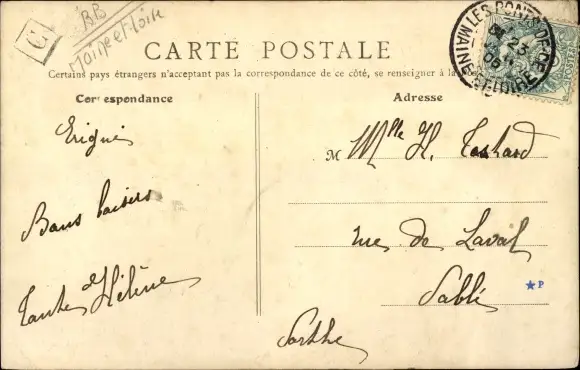 BB
Maine et Loire
CARTE POSTALE
Certains pays étrangers n'acceptant pas la correspondance de ce côté, se renseigner à la
Correspondance
Adresse
Erigné
Bons baisers
Tante Hélène
M lle H. Tachard
rue de Laval
Sablé
Sarthe
LES PONTS-DE-CÉ
23
06
MAINE-ET-LOIRE
P